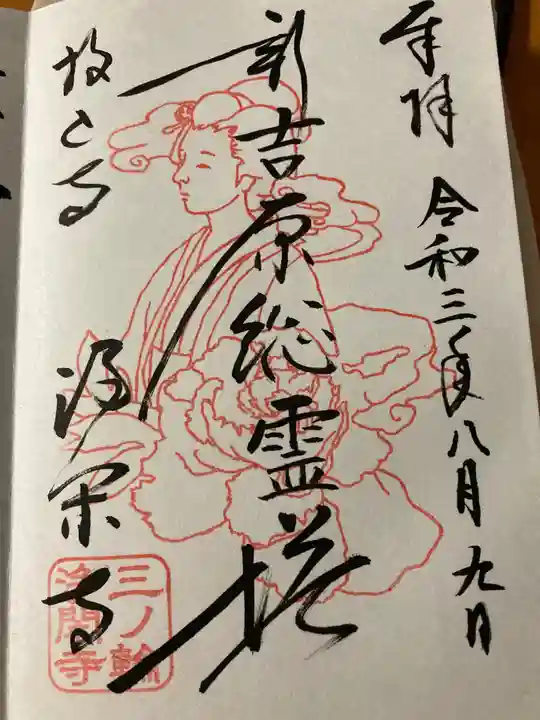 奉拝 令和三年八月九日
新吉原総霊塔
投込寺 浄閑寺
三ノ輪
浄閑寺